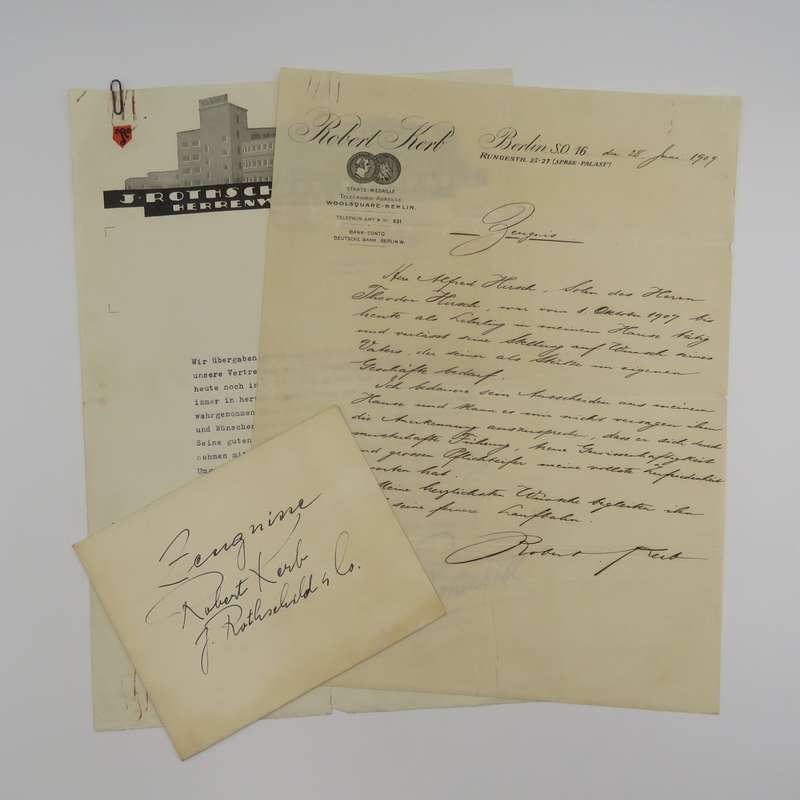 J. ROTHSCH
HERRENW
Wir übergaben
unsere Vertre
heute noch i
immer in her
wahrgenommen
und Wünschen
Seine guten
nehmen mi
Robert Kerb
STAATS-MEDAILLE
TELEGRAMM-ADRESSE:
WOOLSQUARE-BERLIN.
TELEPHON AMT 631
BANK-CONTO
DEUTSCHE BANK, BERLIN W.
Berlin S.O. 16 den 28. Juni 1909
RUNGESTR. 25-27 (SPREE-PALAST)
Zeugnis
Herr Alfred Hirsch, Sohn des Herrn
Theodor Hirsch, war vom 1 Oktober 1907 bis
heute als Lehrling in meinem Hause tätig
und verlässt seine Stellung auf Wunsch seines
Vaters, der seiner als Stütze im eigenen
Geschäfte bedarf.
Ich bedaure sein Ausscheiden aus meinem
Hause und kann es mir nicht versagen ihm
die Anerkennung auszusprechen, dass er sich durch
musterhafte Führung, Gewissenhaftigkeit
und grossen Pflichteifer meine vollste Zufriedenheit
erworben hat.
Meine herzlichsten Wünsche begleiten ihn
seine fernere Laufbahn.
Robert Kerb
Zeugnisse
Robert Kerb
J. Rothschild & Co.